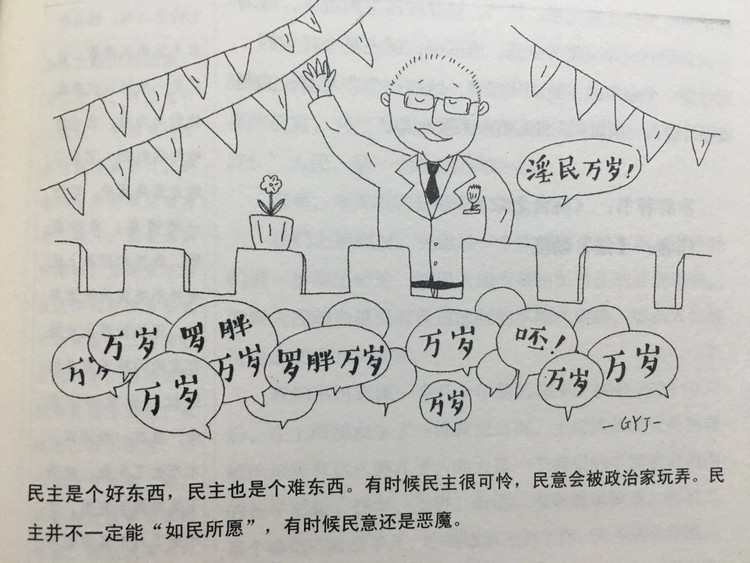 淫民万岁！
万岁
万岁
罗胖
万岁
万岁
罗胖万岁
万岁
万岁
呸！
万岁
万岁
-GYJ-
民主是个好东西，民主也是个难东西。有时候民主很可怜，民意会被政治家玩弄。民
主并不一定能“如民所愿”，有时候民意还是恶魔。